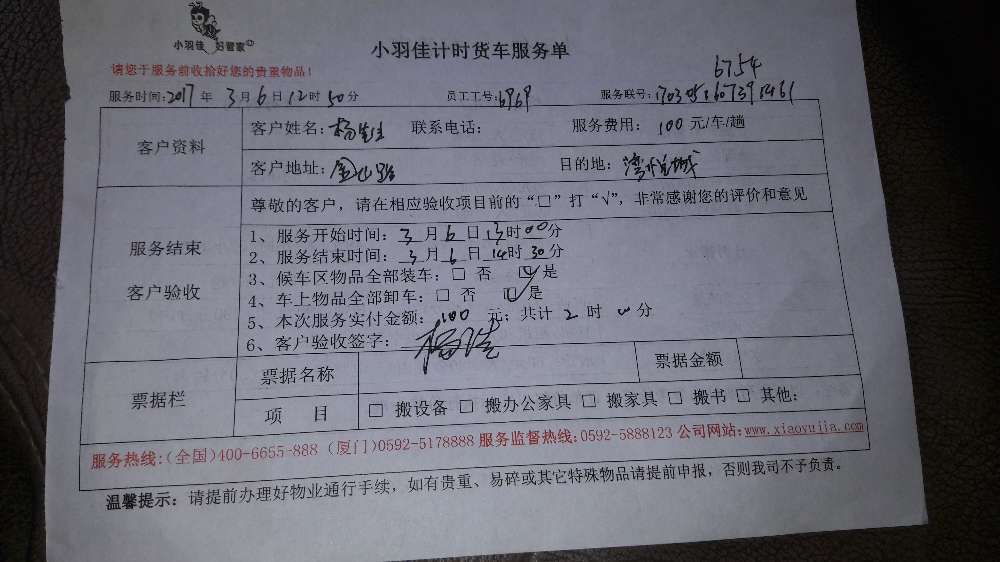 小羽佳 好管家
小羽佳计时货车服务单
请您于服务前收拾好您的贵重物品！
6754
服务时间：2017 年 3 月 6 日 12 时 50 分 员工工号：6969 服务联号：
客户资料
客户姓名：杨先生 联系电话： 服务费用：100 元/车/趟
客户地址：金山路 目的地：湾悦城
服务结束
客户验收
尊敬的客户，请在相应验收项目前的“□”打“√”，非常感谢您的评价和意见
1、服务开始时间：3 月 6 日 13 时 00 分
2、服务结束时间：3 月 6 日 14 时 30 分
3、候车区物品全部装车：□ 否 ☑ 是
4、车上物品全部卸车：□ 否 ☑ 是
5、本次服务实付金额：100 元；共计 2 时 00 分
6、客户验收签字：
票据栏
票据名称 票据金额
项 目 □ 搬设备 □ 搬办公家具 □ 搬家具 □ 搬书 □ 其他：
服务热线：(全国)400-6655-888 (厦门)0592-5178888 服务监督热线：0592-5888123 公司网站：www.xiaoyujia.com
温馨提示：请提前办理好物业通行手续，如有贵重、易碎或其它特殊物品请提前申报，否则我司不予负责。